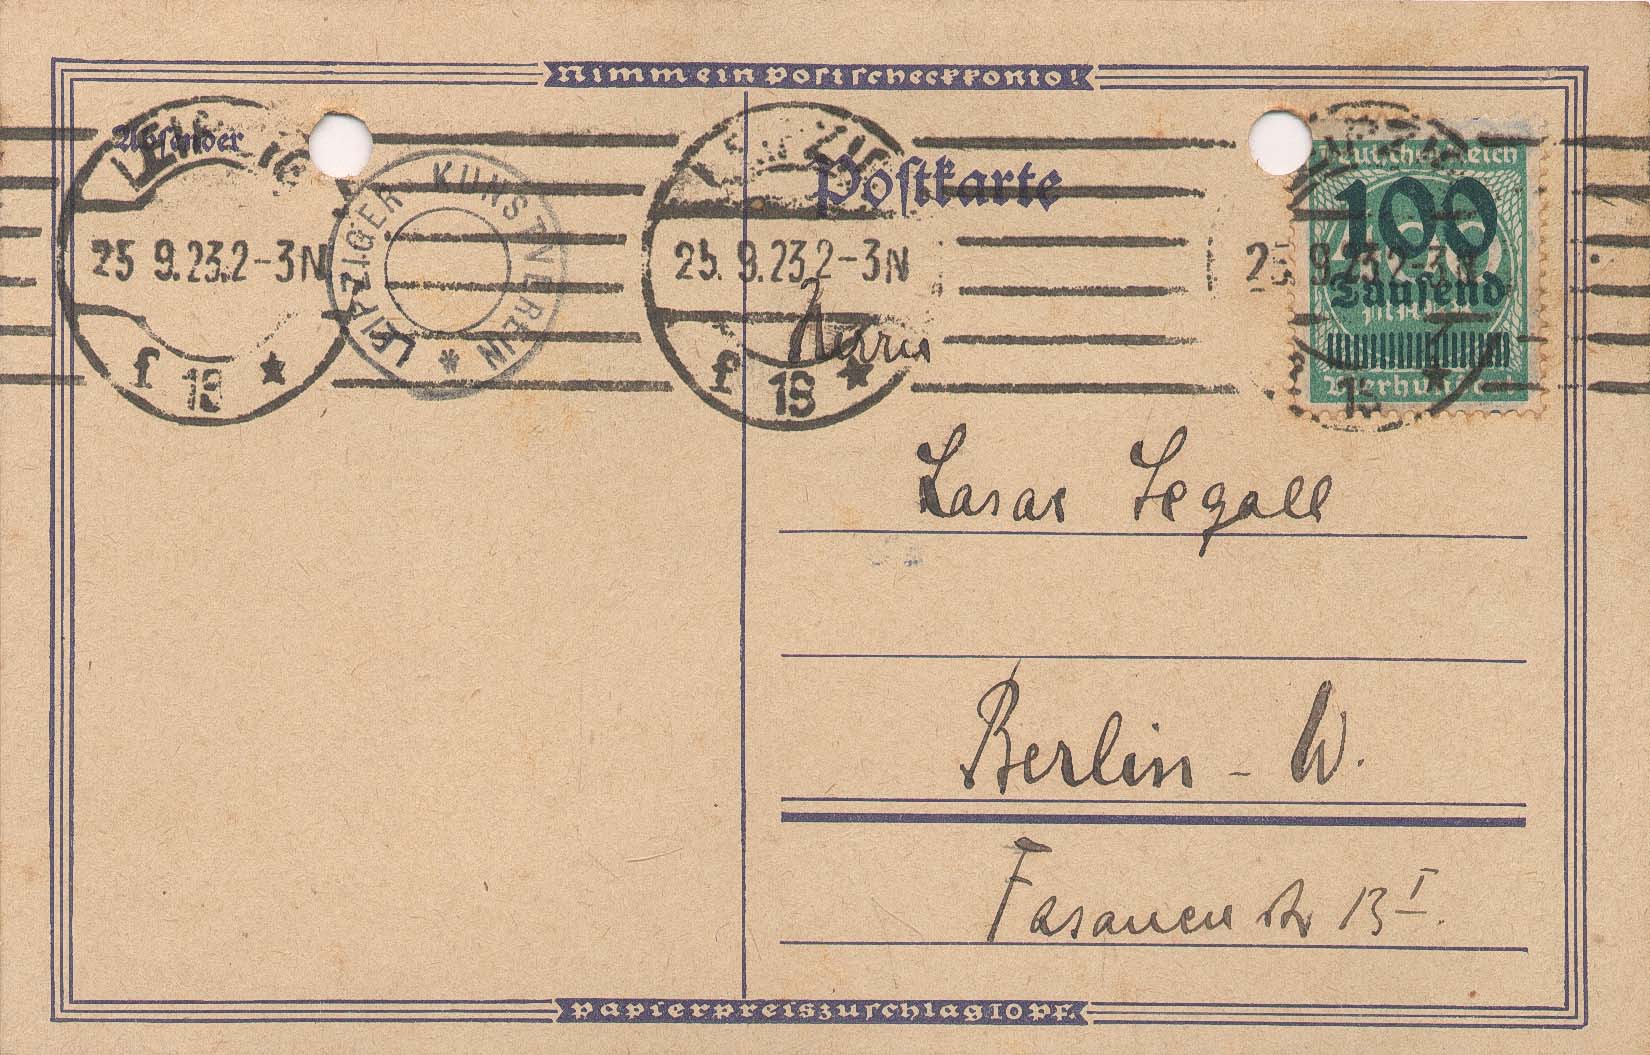 Nimm ein Postscheckkonto!
Absender
LEIPZIG
25.9.23.2-3N
f 18 *
LEIPZIGER KUNSTVEREIN *
LEIPZIG
25.9.23.2-3N
f 18 *
Postkarte
Deutsches Reich
100
Tausend
Mark
9.23.2-3N
18 *
Herrn
Lasar Segall
Berlin - W.
Fasanenstr 13 I.
Papierpreiszuschlag 10 Pf.